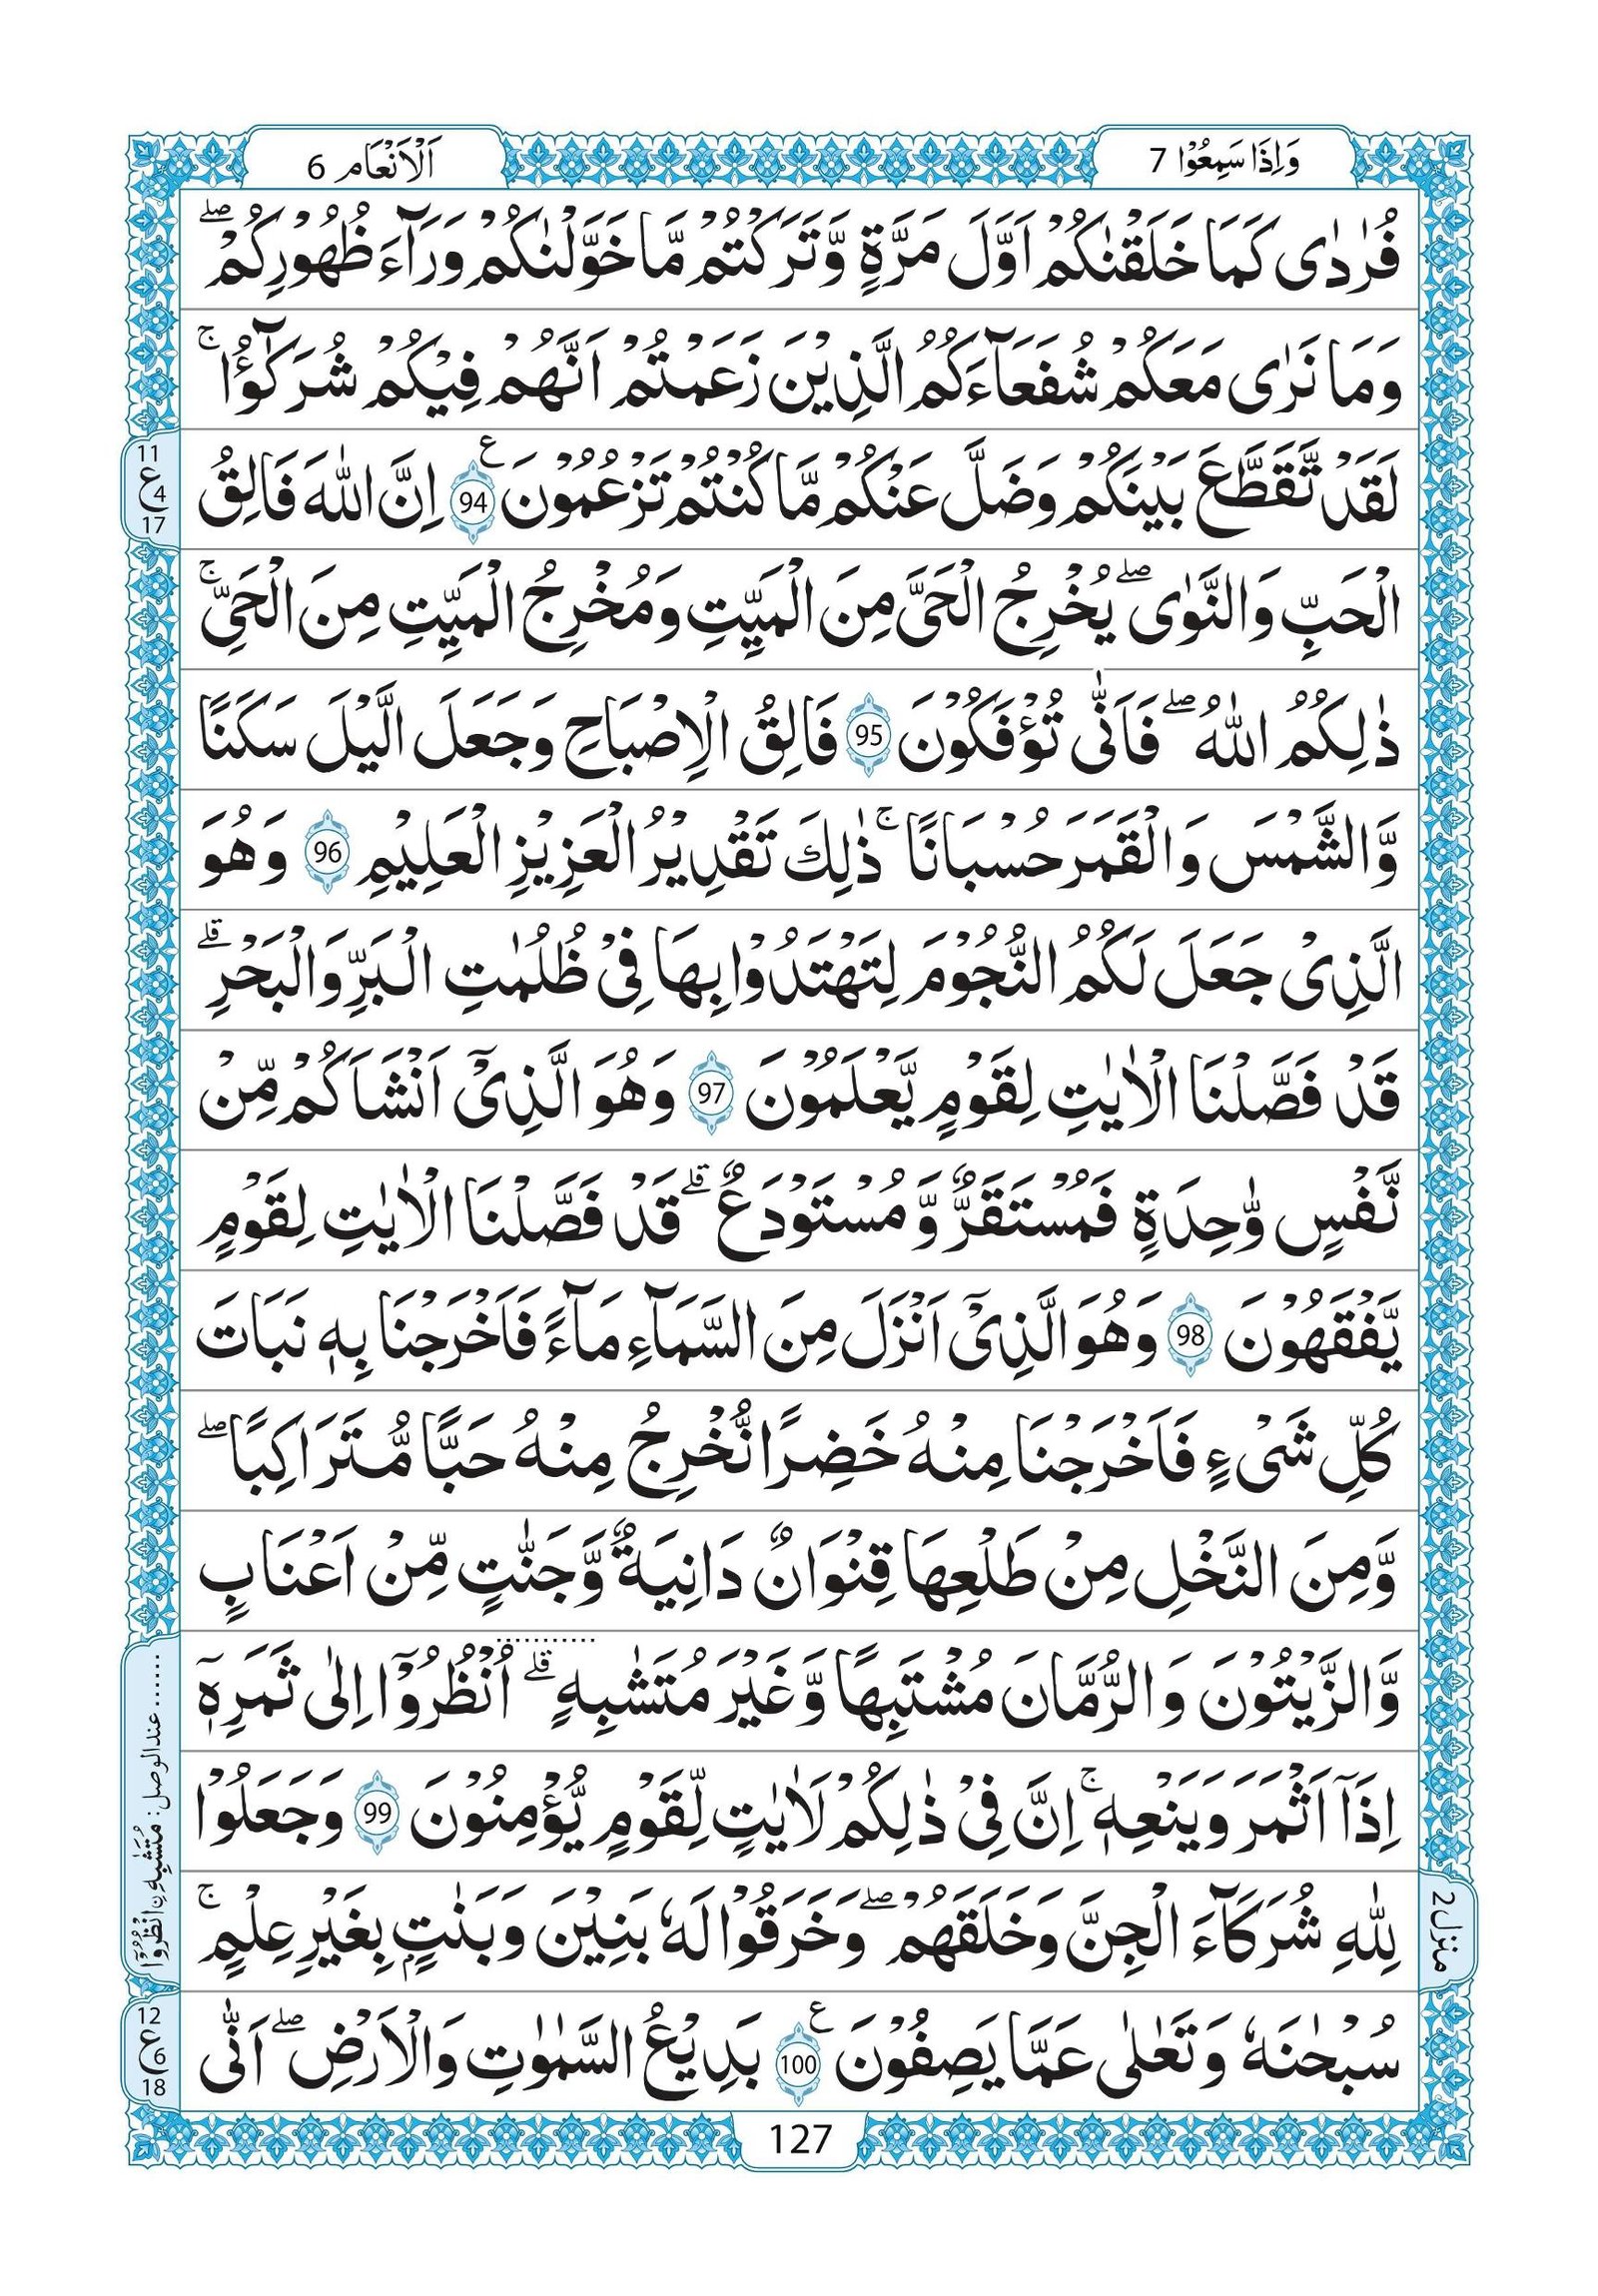 وَاِذَا سَمِعُوْا 7
اَلْاَنْعَام 6
فُرٰدٰى كَمَا خَلَقْنٰكُمْ اَوَّلَ مَرَّةٍ وَّتَرَكْتُمْ مَّا خَوَّلْنٰكُمْ وَرَآءَ ظُهُوْرِكُمْ ۖ
وَمَا نَرٰى مَعَكُمْ شُفَعَآءَكُمُ الَّذِيْنَ زَعَمْتُمْ اَنَّهُمْ فِيْكُمْ شُرَكٰٓؤُا ۚ
لَقَدْ تَّقَطَّعَ بَيْنَكُمْ وَضَلَّ عَنْكُمْ مَّا كُنْتُمْ تَزْعُمُوْنَ ع 94 اِنَّ اللّٰهَ فَالِقُ
11 ع 4 17
الْحَبِّ وَالنَّوٰى ۖ يُخْرِجُ الْحَىَّ مِنَ الْمَيِّتِ وَمُخْرِجُ الْمَيِّتِ مِنَ الْحَىِّ ۚ
ذٰلِكُمُ اللّٰهُ ۖ فَاَنّٰى تُؤْفَكُوْنَ 95 فَالِقُ الْاِصْبَاحِ وَجَعَلَ الَّيْلَ سَكَنًا
وَّالشَّمْسَ وَالْقَمَرَ حُسْبَانًا ۚ ذٰلِكَ تَقْدِيْرُ الْعَزِيْزِ الْعَلِيْمِ 96 وَهُوَ
الَّذِىْ جَعَلَ لَكُمُ النُّجُوْمَ لِتَهْتَدُوْا بِهَا فِىْ ظُلُمٰتِ الْبَرِّ وَالْبَحْرِ ۗ
قَدْ فَصَّلْنَا الْاٰيٰتِ لِقَوْمٍ يَّعْلَمُوْنَ 97 وَهُوَ الَّذِىْٓ اَنْشَاَكُمْ مِّنْ
نَّفْسٍ وّٰحِدَةٍ فَمُسْتَقَرٌّ وَّمُسْتَوْدَعٌ ۗ قَدْ فَصَّلْنَا الْاٰيٰتِ لِقَوْمٍ
يَّفْقَهُوْنَ 98 وَهُوَ الَّذِىْٓ اَنْزَلَ مِنَ السَّمَآءِ مَآءً فَاَخْرَجْنَا بِهٖ نَبَاتَ
كُلِّ شَىْءٍ فَاَخْرَجْنَا مِنْهُ خَضِرًا نُّخْرِجُ مِنْهُ حَبًّا مُّتَرَاكِبًا ۖ
وَّمِنَ النَّخْلِ مِنْ طَلْعِهَا قِنْوَانٌ دَانِيَةٌ وَّجَنّٰتٍ مِّنْ اَعْنَابٍ
وَّالزَّيْتُوْنَ وَالرُّمَّانَ مُشْتَبِهًا وَّغَيْرَ مُتَشٰبِهٍ ۗ اُنْظُرُوْٓا اِلٰى ثَمَرِهٖٓ
...... عندالوصل: مُتَشٰبِهِ نِانْظُرُوْٓا
اِذَآ اَثْمَرَ وَيَنْعِهٖ ۚ اِنَّ فِىْ ذٰلِكُمْ لَاٰيٰتٍ لِّقَوْمٍ يُّؤْمِنُوْنَ 99 وَجَعَلُوْا
لِلّٰهِ شُرَكَآءَ الْجِنَّ وَخَلَقَهُمْ ۖ وَخَرَقُوْا لَهٗ بَنِيْنَ وَبَنٰتٍۭ بِغَيْرِ عِلْمٍ ۚ
منزل 2
سُبْحٰنَهٗ وَتَعٰلٰى عَمَّا يَصِفُوْنَ ع 100 بَدِيْعُ السَّمٰوٰتِ وَالْاَرْضِ ۖ اَنّٰى
12 ع 6 18
127